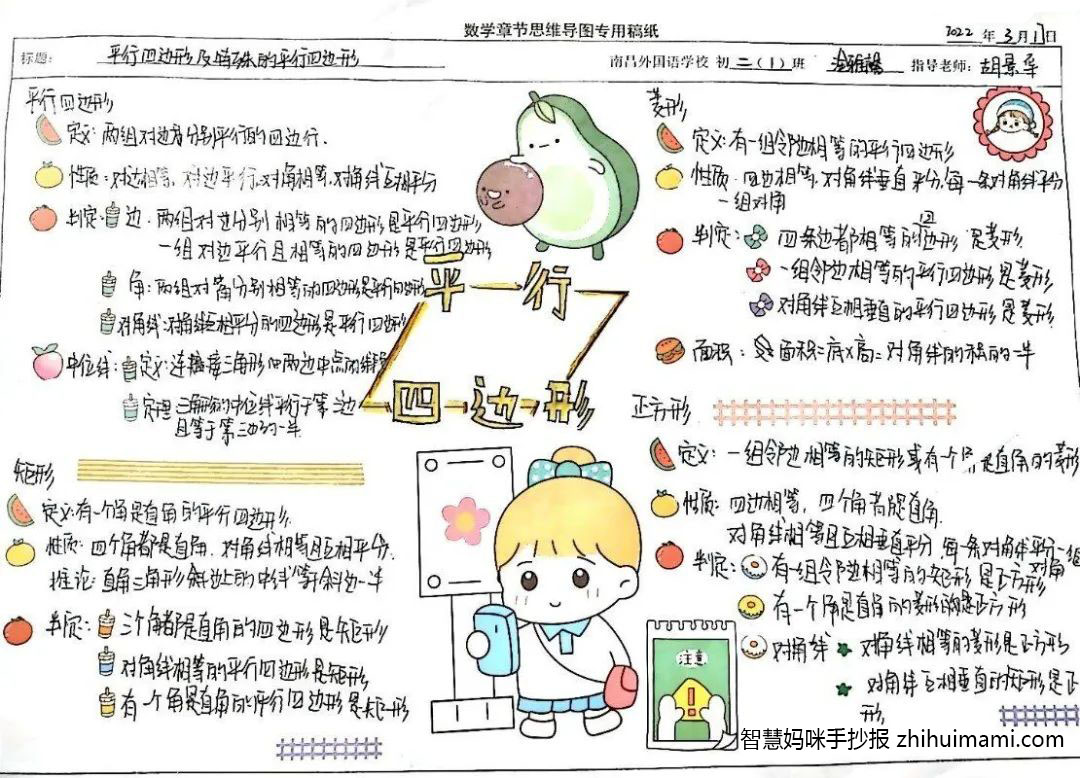 数学章节思维导图专用稿纸
2022 年 3 月 17日
标题: 平行四边形及特殊的平行四边形
南昌外国语学校 初 二(1) 班 指导老师: 胡景华
平行四边形
定义: 两组对边分别平行的四边行.
性质: 对边相等, 对边平行, 对角相等, 对角线互相平分
判定: 边. 两组对边分别相等的四边形是平行四边形
一组对边平行且相等的四边形是平行四边形
角: 两组对角分别相等的四边形是平行四边形
对角线: 对角线互相平分的四边形是平行四边形
中位线: 定义: 连接三角形 两边中点的线段
定理 三角形的中位线平行于第三边
且等于第三边的一半.
平行
四边形
矩形
定义: 有一个角是直角的平行四边形.
性质: 四个角都是直角. 对角线相等且互相平分.
推论: 直角三角形斜边上的中线等于斜边一半
判定: 三个角都是直角的四边形是矩形
对角线相等的平行四边形是矩形
有一个角是直角的平行四边形是矩形
菱形
定义: 有一组邻边相等的平行四边形
性质. 四边相等, 对角线垂直平分, 每一条对角线平分
一组对角
判定: 四条边都相等的四边形是菱形.
一组邻边相等的平行四边形是菱形
对角线互相垂直的平行四边形是菱形.
面积: 面积=底×高= 对角线的积的一半
正方形
定义: 一组邻边相等的矩形或有一个 是直角的菱形
性质: 四边相等, 四个角都是直角.
对角线相等且互相垂直平分, 每一条对角线平分一组
对角
判定: 有一组邻边相等的矩形是正方形
有一个角是直角的菱形 是正方形
对角线 对角线相等的菱形是正方形
对角线互相垂直的矩形是正
形,
注意
智慧妈咪手抄报 zhihuimami.com